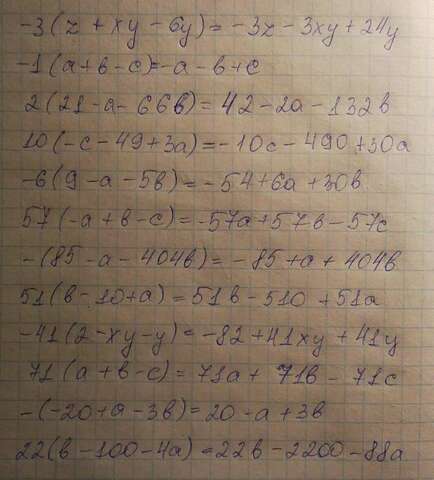 -3(z + xy - 6y) = -3z - 3xy + 24y
-1(a+b-c)=-a-b+c
2(21-a-66b) = 42-2a-132b
10(-c-49+3a)=-10c-490+30a
-6(9-a-5b)=-54+6a+30b
57(-a+b-c)=-57a+57b-57c
-(85-a-404b)=-85+a+404b
51(b-10+a)=51b-510+51a
-41(2-xy-y)=-82+41xy+41y
71(a+b-c)=71a+71b-71c
-(-20+a-3b)=20-a+3b
22(b-100-4a)=22b-2200-88a